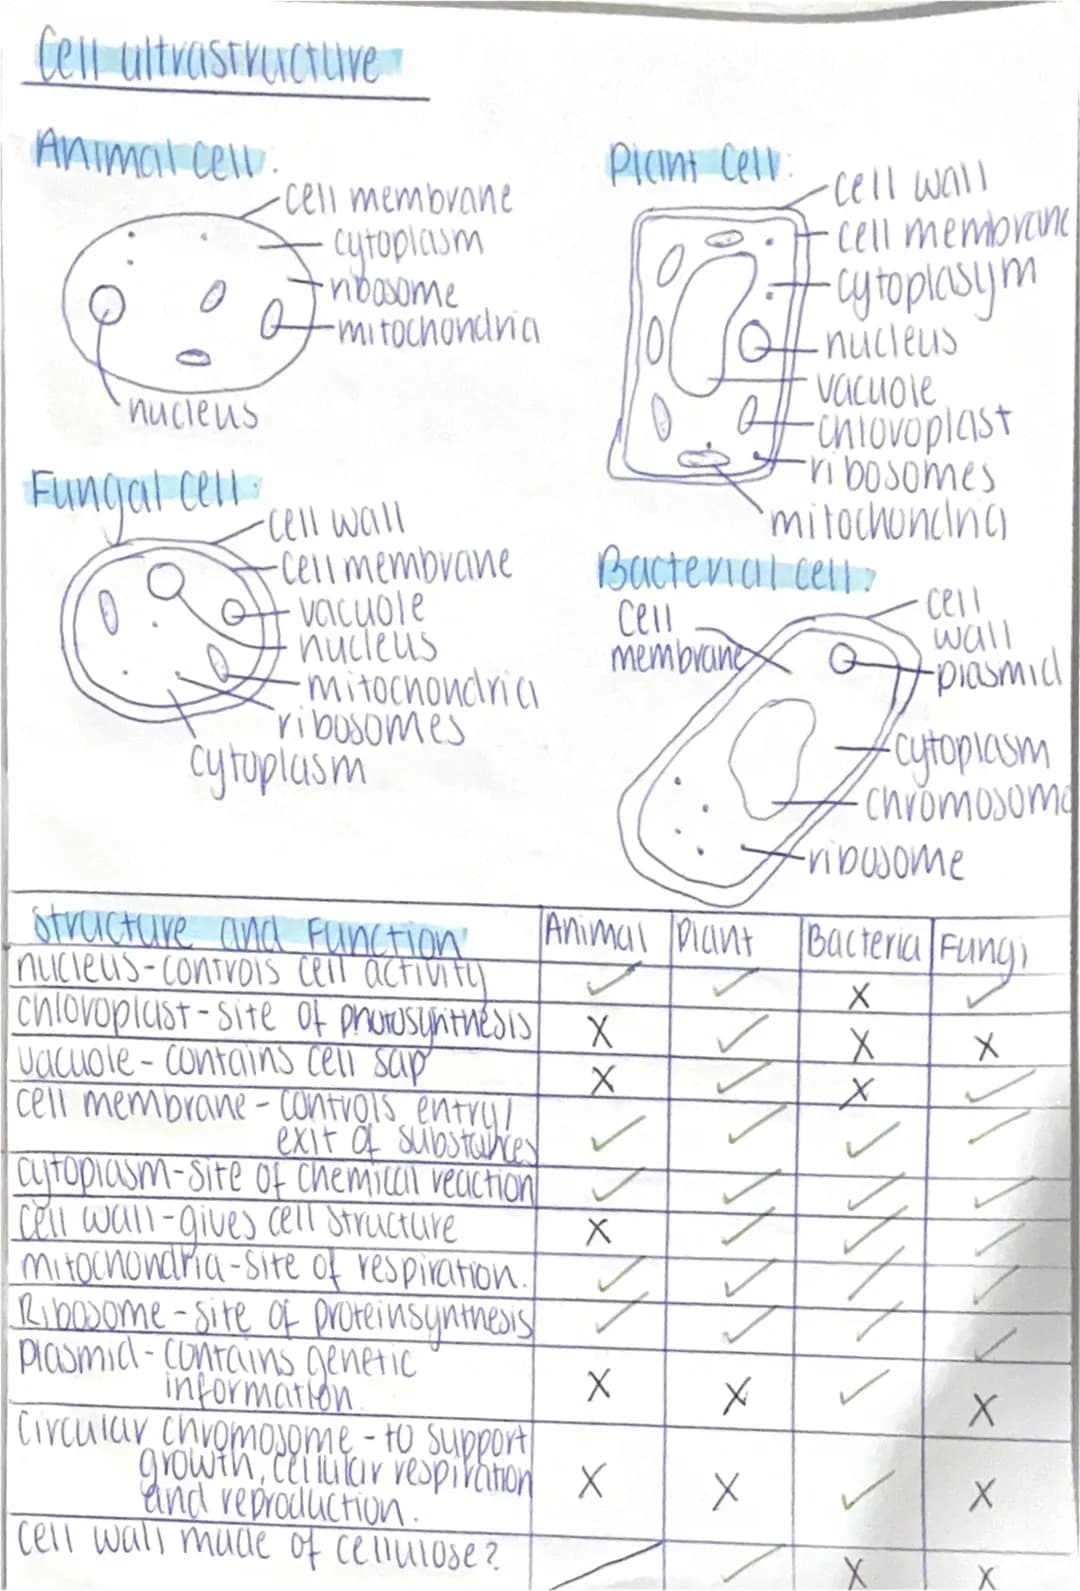 Cell ultrastructure
Animal cell:
cell membrane
cytoplasm
ribosome
mitochondria
nucleus
Plant Cell:
cell wall
cell membrane
cytoplasym
nucleus
vacuole
chloroplast
ribosomes
mitochondria
Fungal cell:
cell wall
cell membrane
vacuole
nucleus
mitochondria
ribosomes
cytoplasm
Bacterial cell:
cell
membrane
cell
wall
plasmid
cytoplasm
chromosome
ribosome
Structure and Function Animal Plant Bacteria Fungi
nucleus-controls cell activity ✓ ✓ X ✓
chloroplast-site of photosynthesis X ✓ X X
vacuole - contains cell sap X ✓ X ✓
cell membrane - controls entry/
exit of substances ✓ ✓ ✓ ✓
cytoplasm-site of chemical reaction ✓ ✓ ✓ ✓
cell wall-gives cell structure X ✓ ✓ ✓
mitochondria-site of respiration. ✓ ✓ / ✓
Ribosome-site of proteinsynthesis ✓ ✓ ✓ ✓
plasmid - contains genetic
information. X X ✓ X
Circular chromosome - to support
growth, cellular respiration
and reproduction. X X ✓ X
cell wall made of cellulose? / ✓ X X